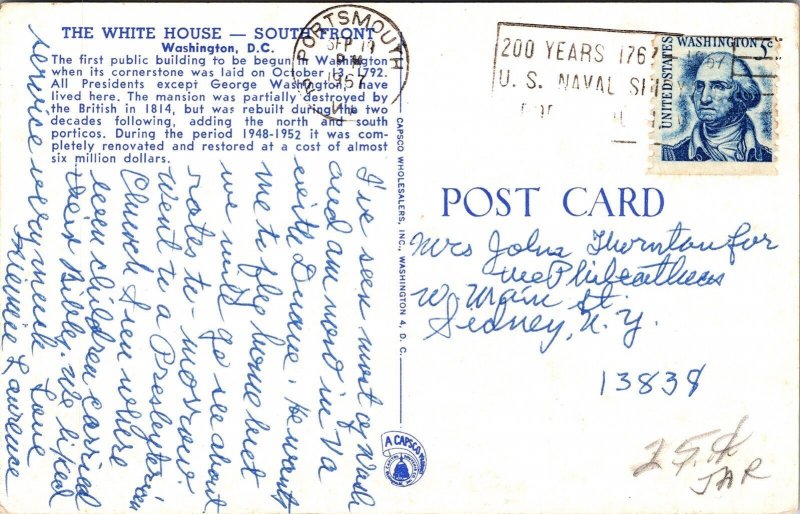 THE WHITE HOUSE — SOUTH FRONT
Washington, D.C.
The first public building to be begun in Washington
when its cornerstone was laid on October 13, 1792.
All Presidents except George Washington, have
lived here. The mansion was partially destroyed by
the British in 1814, but was rebuilt during the two
decades following, adding the north and south
porticos. During the period 1948-1952 it was com-
pletely renovated and restored at a cost of almost
six million dollars.
I've seen most of Wash
and am now in Va
with Duane. He wants
me to fly home but
we will go see about
rates to-morrow.
Went to a Presbyterian
Church Sun where
even children carried
their Bibles. We liked
service very much Love
Minnie Lawrence
CAPSCO WHOLESALERS, INC., WASHINGTON 4, D. C.
A CAPSCO
PORTSMOUTH
SEP 1
PM
1967
VA
200 YEARS 1767 1967
U. S. NAVAL SHIPY
UNITED STATES
WASHINGTON 5c
POST CARD
Mrs John Thornton for
the Philatheas
W. Main St.
Sidney, N. Y.
13838
25¢
JAR